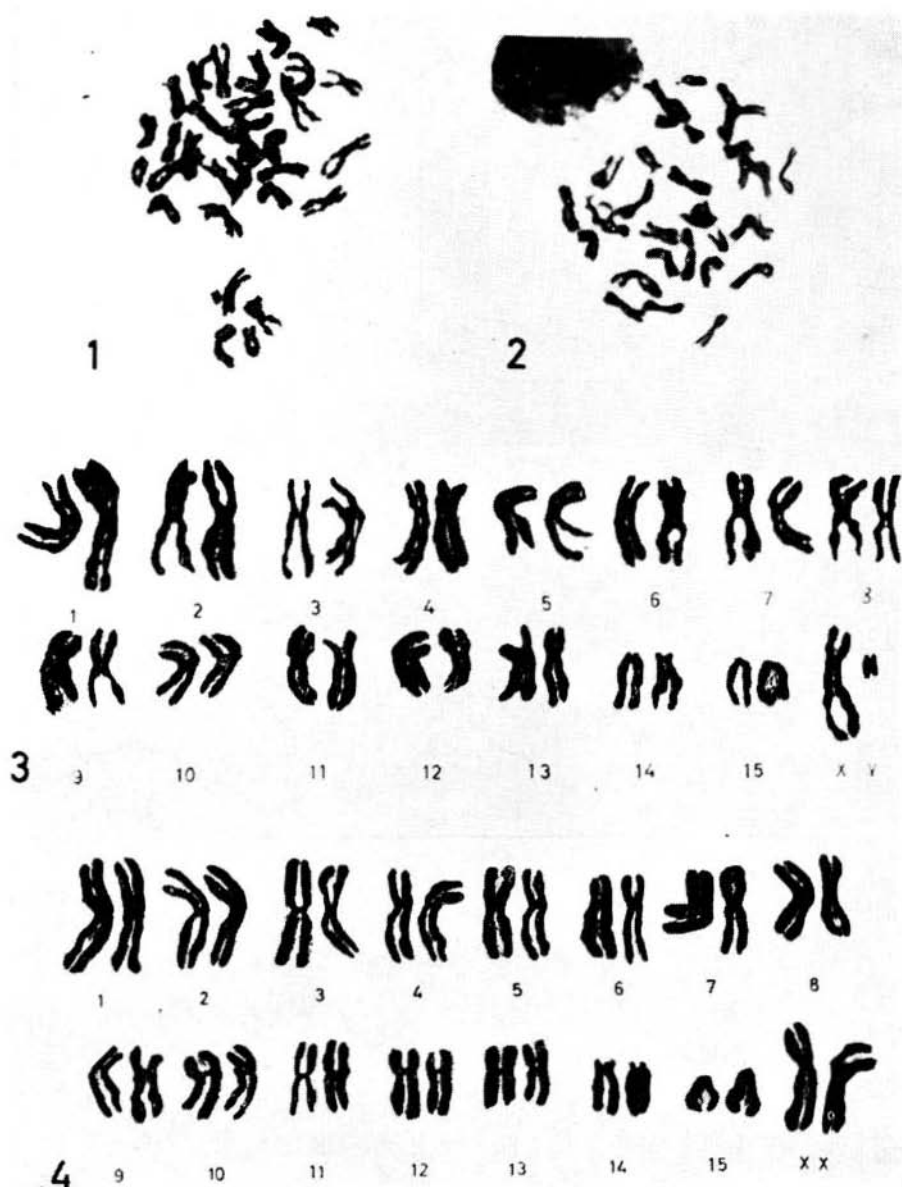 1 2
1 2 3 4 5 6 7 8
3 9 10 11 12 13 14 15 X Y
1 2 3 4 5 6 7 8
4 9 10 11 12 13 14 15 X X